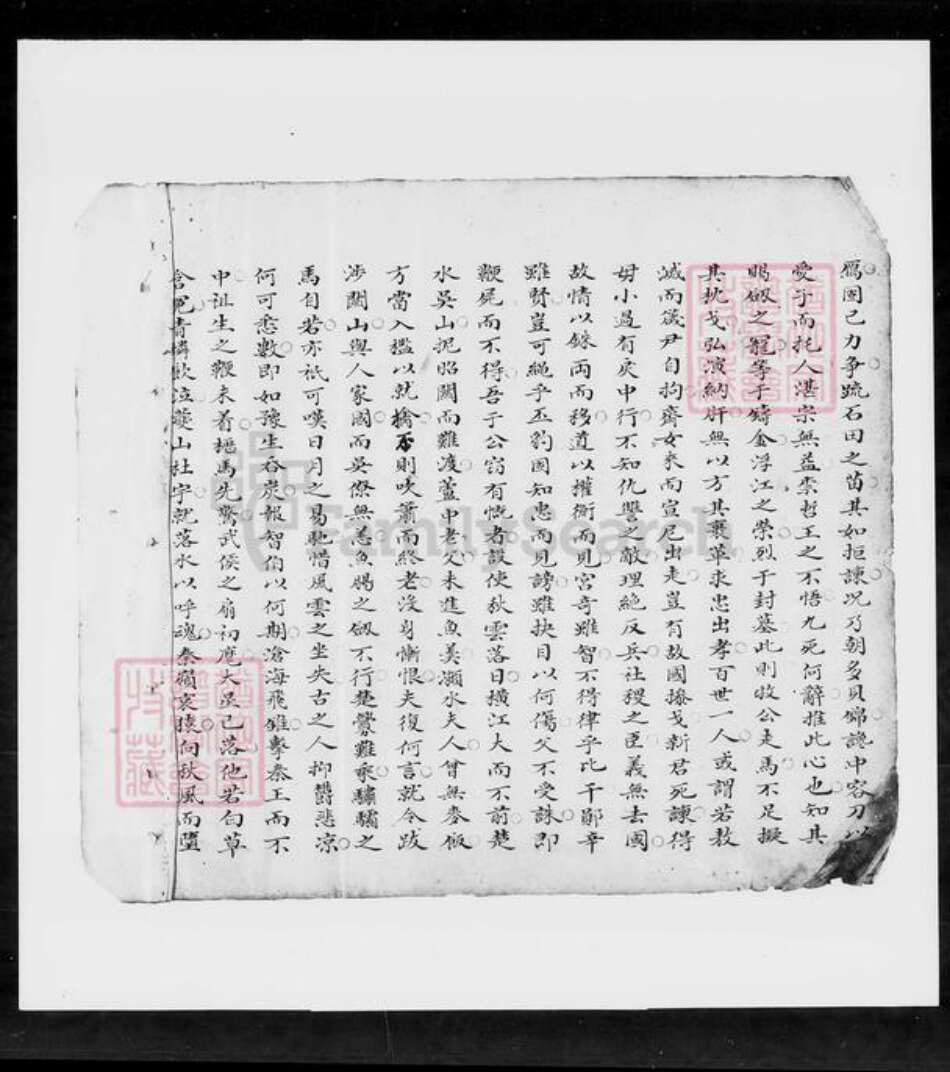 鴈固已力爭跪石田之苗其如拒諫况乃朝多貝錦讒中容刀以
愛子而托人湛宗無益柰哲王之不悟九死何辭推此心也知其
賜劔之寵等于鑄金浮江之榮烈于封墓此則牧公走馬不足擬
其枕戈弘演納肝無以方其裹革求忠出孝百世一人或謂若敖
滅而箴尹自拘齊女來而宣尼出走豈有故國操戈新君死諫得
毋小過有戾中行不知仇讐之敵理絕反兵社稷之臣義無去國
故情以銖兩而移道以權衡而見宮竒雖智不得律乎比干鄖辛
雖賢豈可繩乎丕豹固知忠而見謗雖抉目以何傷父不受誅即
鞭屍而不得吾于公窃有慨者設使秋雲落日横江大而不前楚
水吳山扼昭關而難渡蘆中老父未進魚羮瀨水夫人曾無麥飯
方當入檻以就擒否則吹蕭而終老沒身慚恨夫復何言就令跋
涉關山與人家國而吳僚無恙魚腸之劔不行楚釁難乘驌驦之
馬自若亦祇可嘆日月之易馳惜風雲之坐失古之人抑欝悲凉
何可悉數即如豫生吞炭報智伯以何期滄海飛錐擊秦王而不
中祖生之鞭未着塸馬先驚武侯之扇初麾大星已落他若白草
含寃青燐飲泣蔓山杜宇就落水以呼魂秦嶺哀猿向秋風而墮
FamilySearch